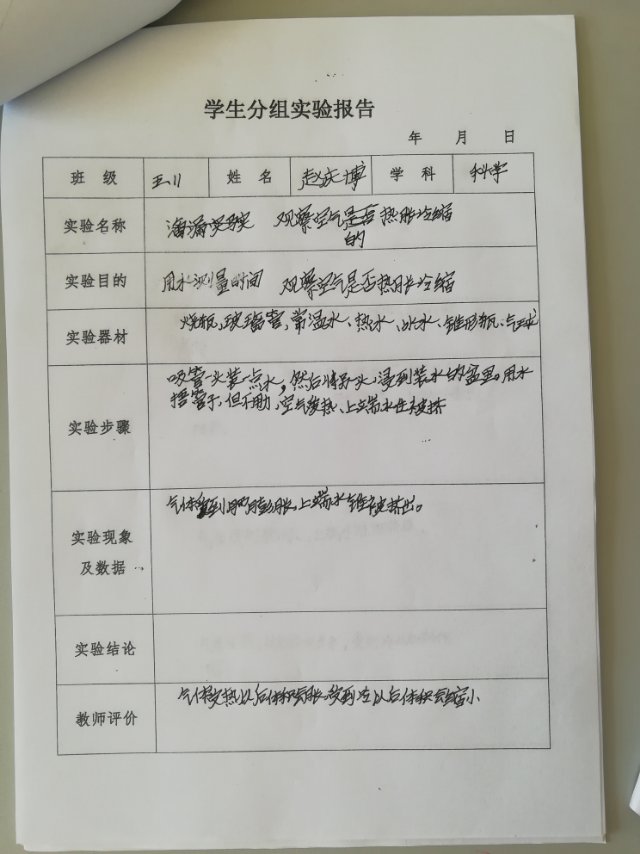 学生分组实验报告
年 月 日
班 级 五11 姓 名 赵庆博 学 科 科学
实验名称 滴漏实验 观察空气是否热胀冷缩
的
实验目的 用水测量时间 观察空气是否热胀冷缩
实验器材 烧瓶、玻璃管、常温水、热水、冰水、锥形瓶、气球
实验步骤 吸管一头装一点水，然后将另一头，浸到装水的盆里。用水
捂管子，但不动，空气变热、上端水柱被挤
实验现象 气体 到 膨胀，上端水 被挤出。
及数据
实验结论
教师评价 气体受热以后体积会胀，受到冷以后体积会缩小